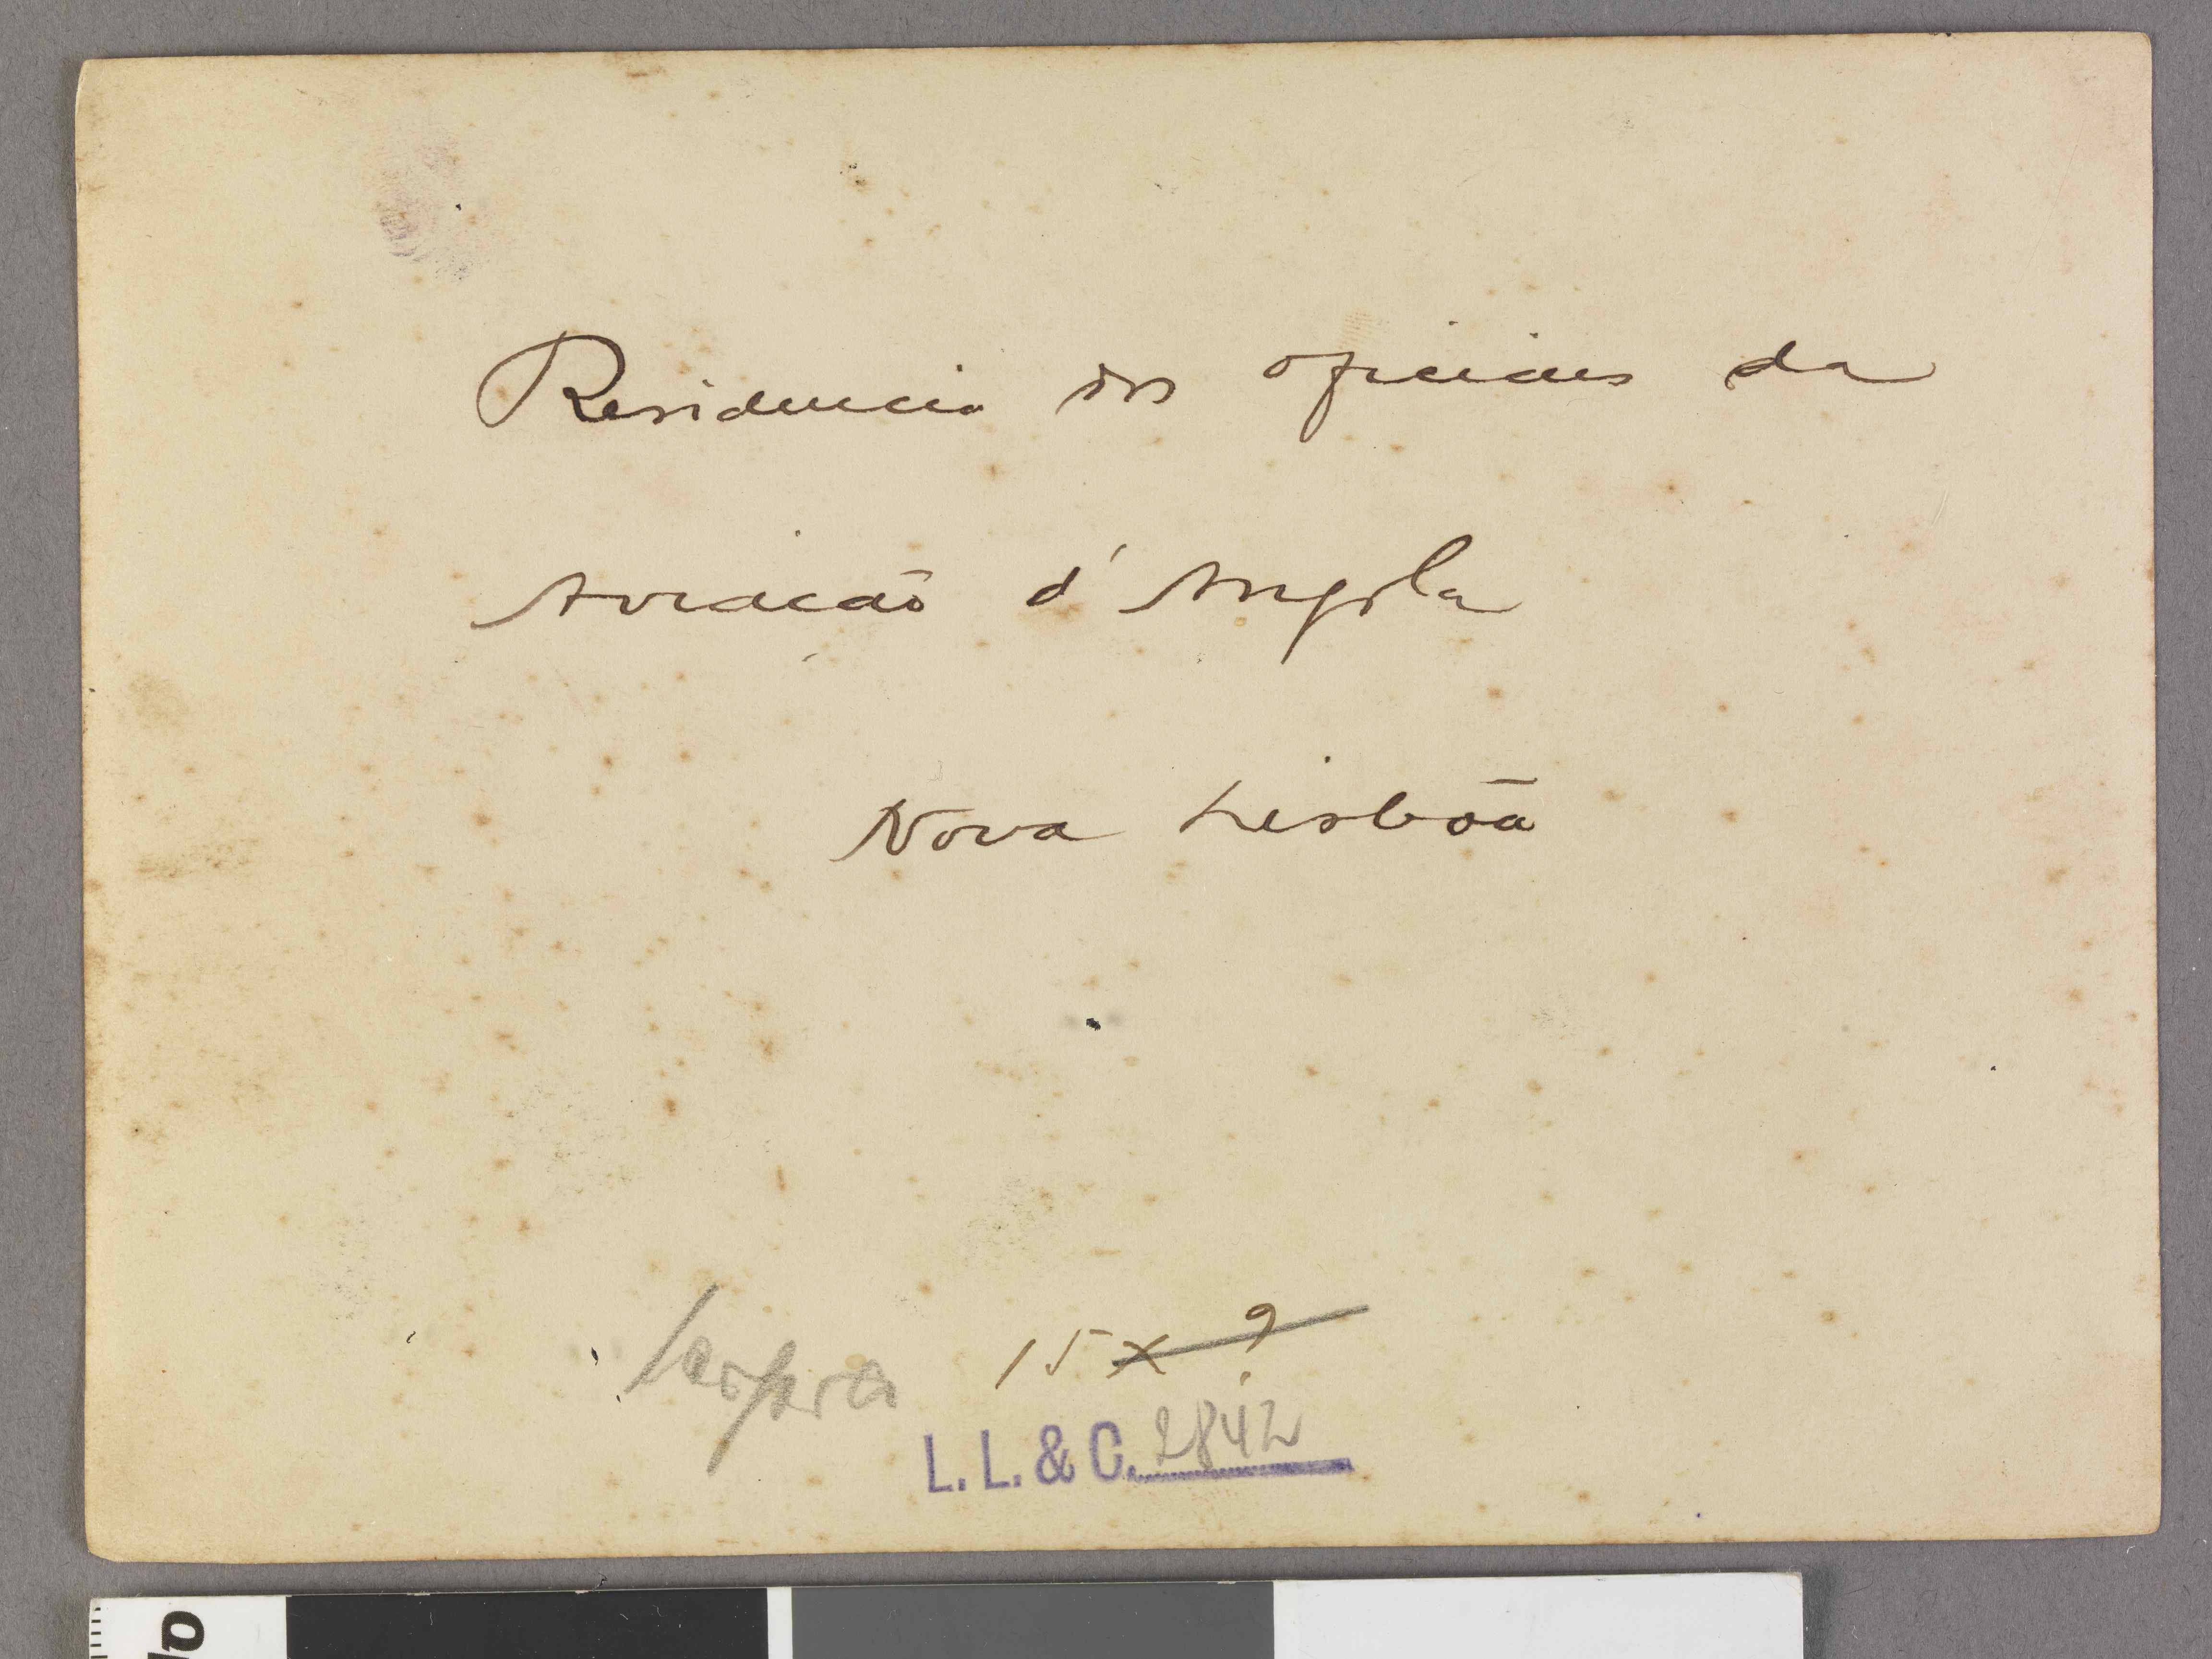 Residencia dos oficiais da
Aviação d'Angola
Nova Lisbôa
15 x 9
L. L. & C. 2842